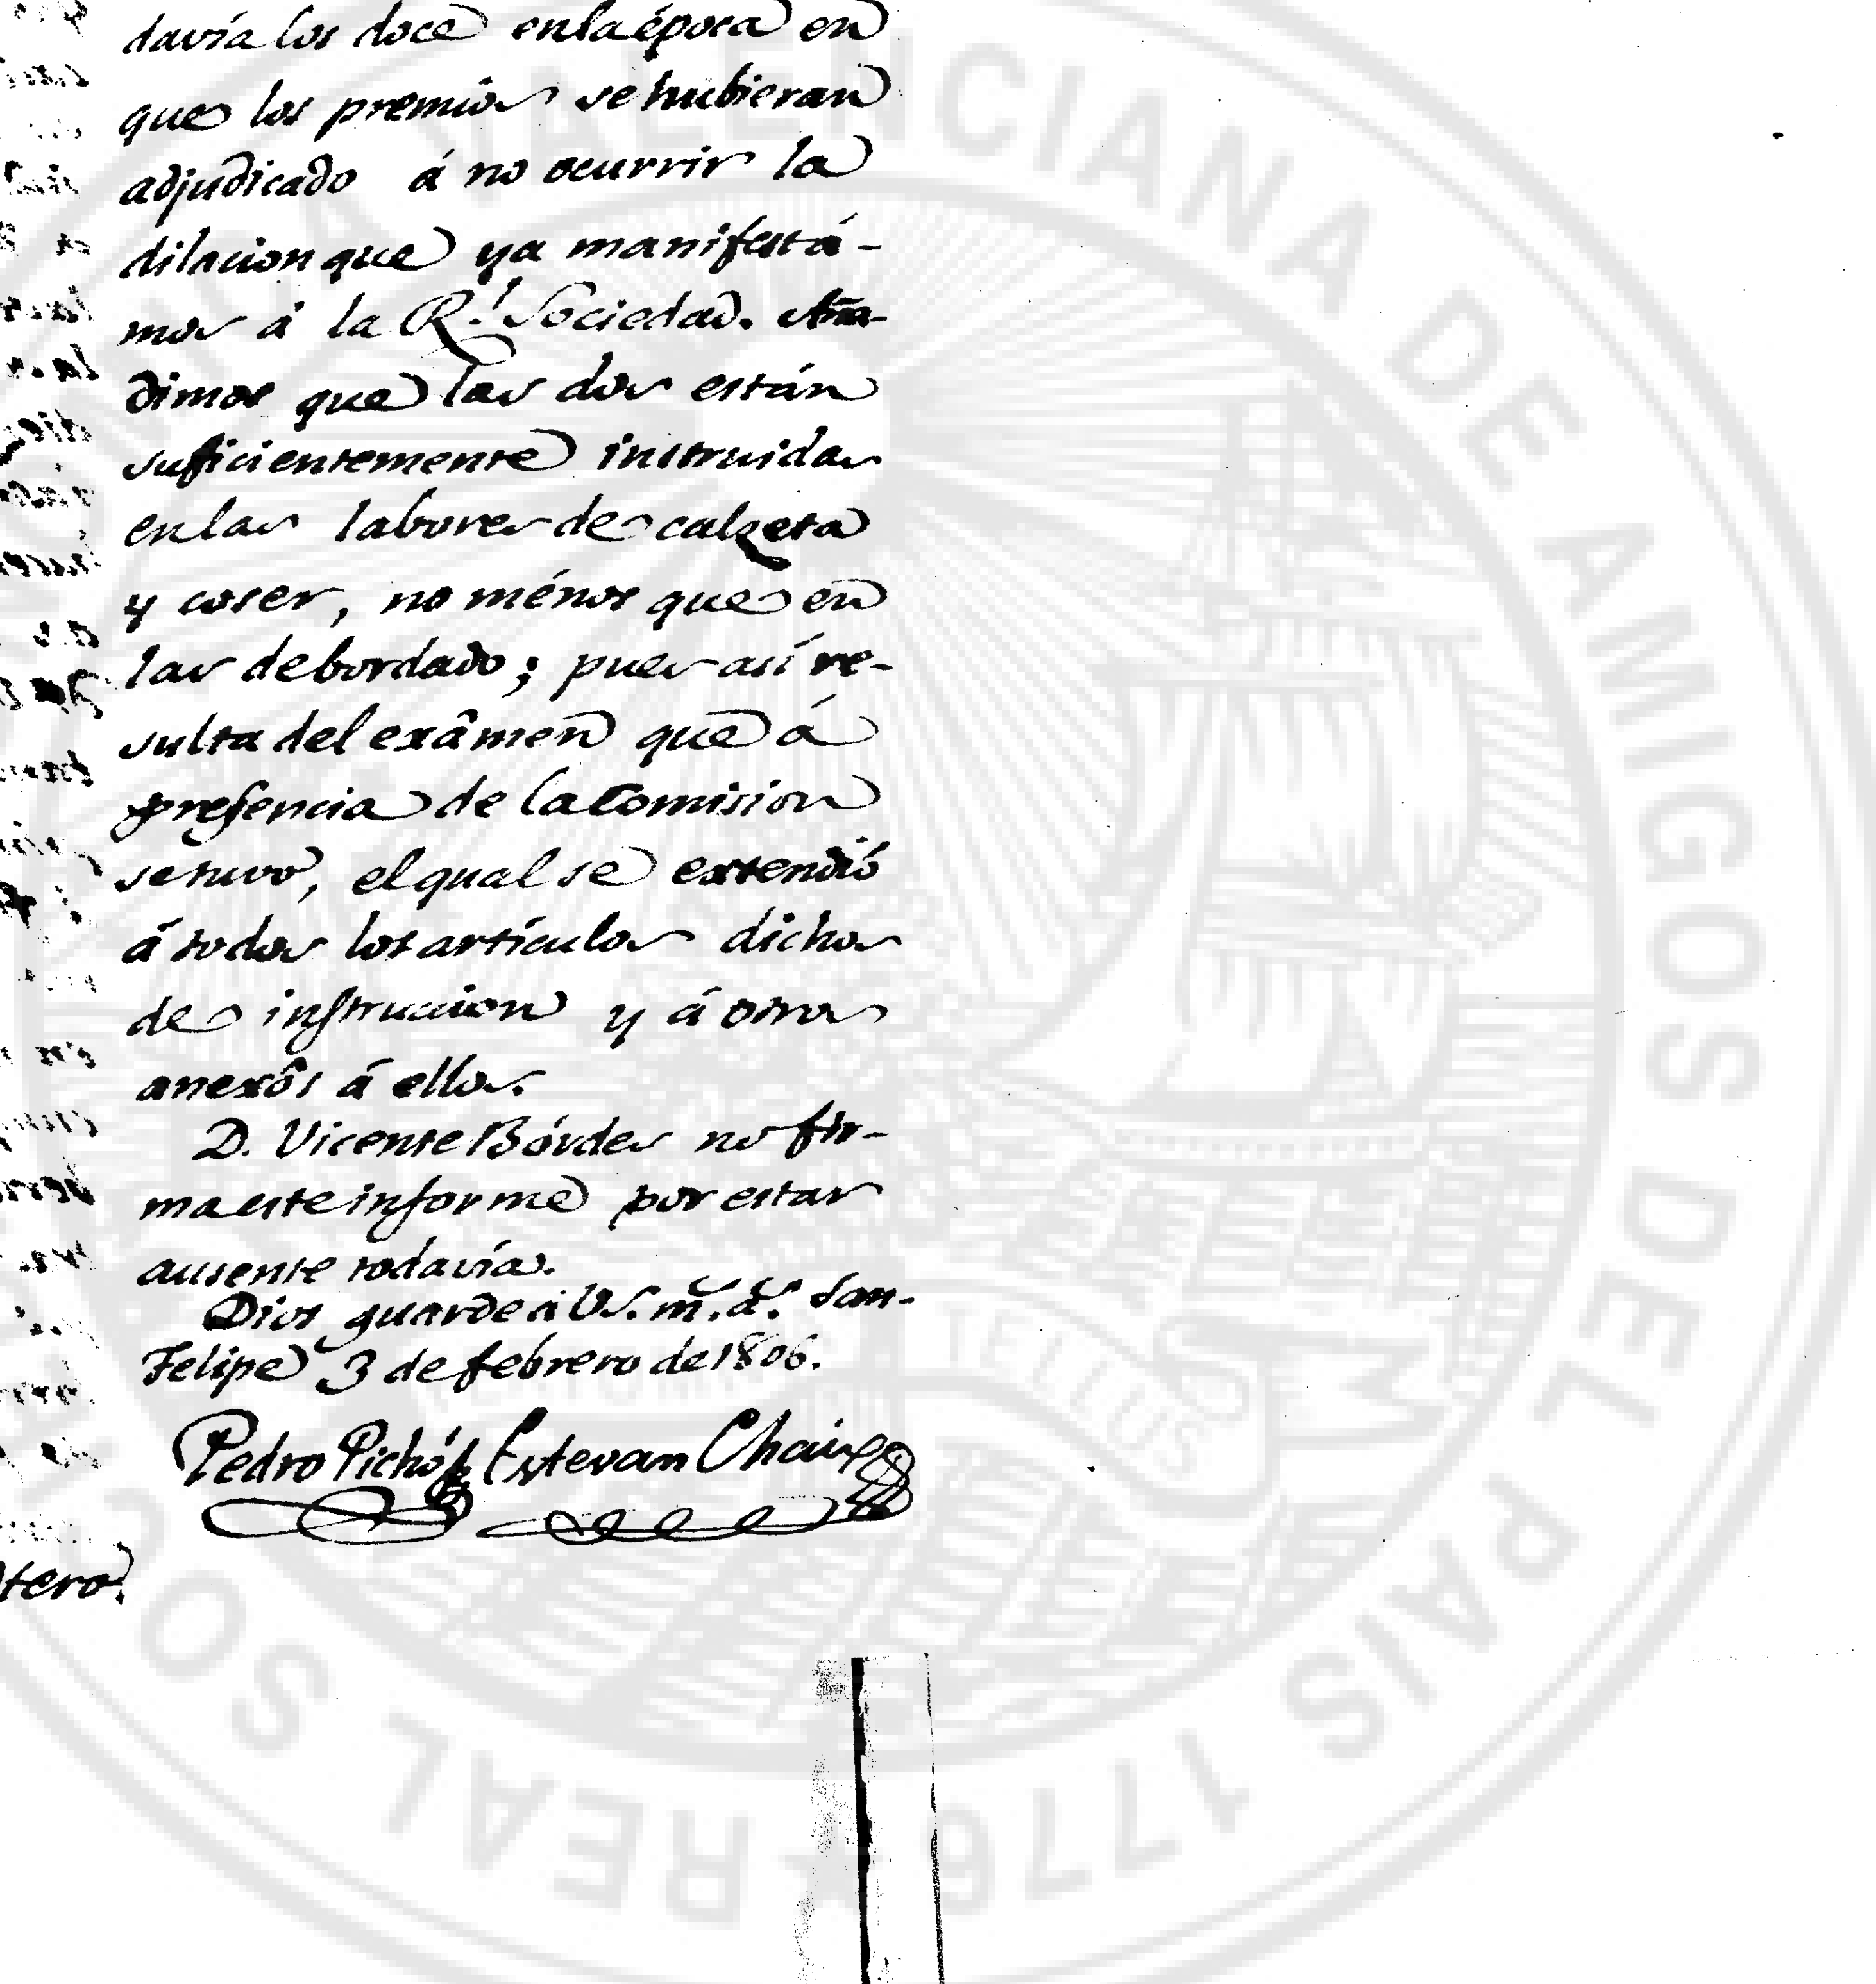 davía los doce en la época en
que los premios se hubieran
adjudicado á no ocurrir la
dilacion que ya manifestá-
mos á la R.l Sociedad. Aña-
dimos que las dos están
suficientemente instruidas
en las labores de calzeta
y coser, no ménos que en
las de bordado; pues así re-
sulta del exâmen que á
presencia de la Comision
se tuvo, el qual se extendió
á todos los artículos dichos
de instruccion y á otros
anexôs á ellos.
D. Vicente Bórdes no fir-
ma este informe por estar
ausente todavía.
Dios guarde á V.S. m.s a.s San-
Felipe 3 de febrero de 1806.
Pedro Pichó Estevan Chaix
tero.
REAL SOCIANA DE AMIGOS DEL PAIS 1776